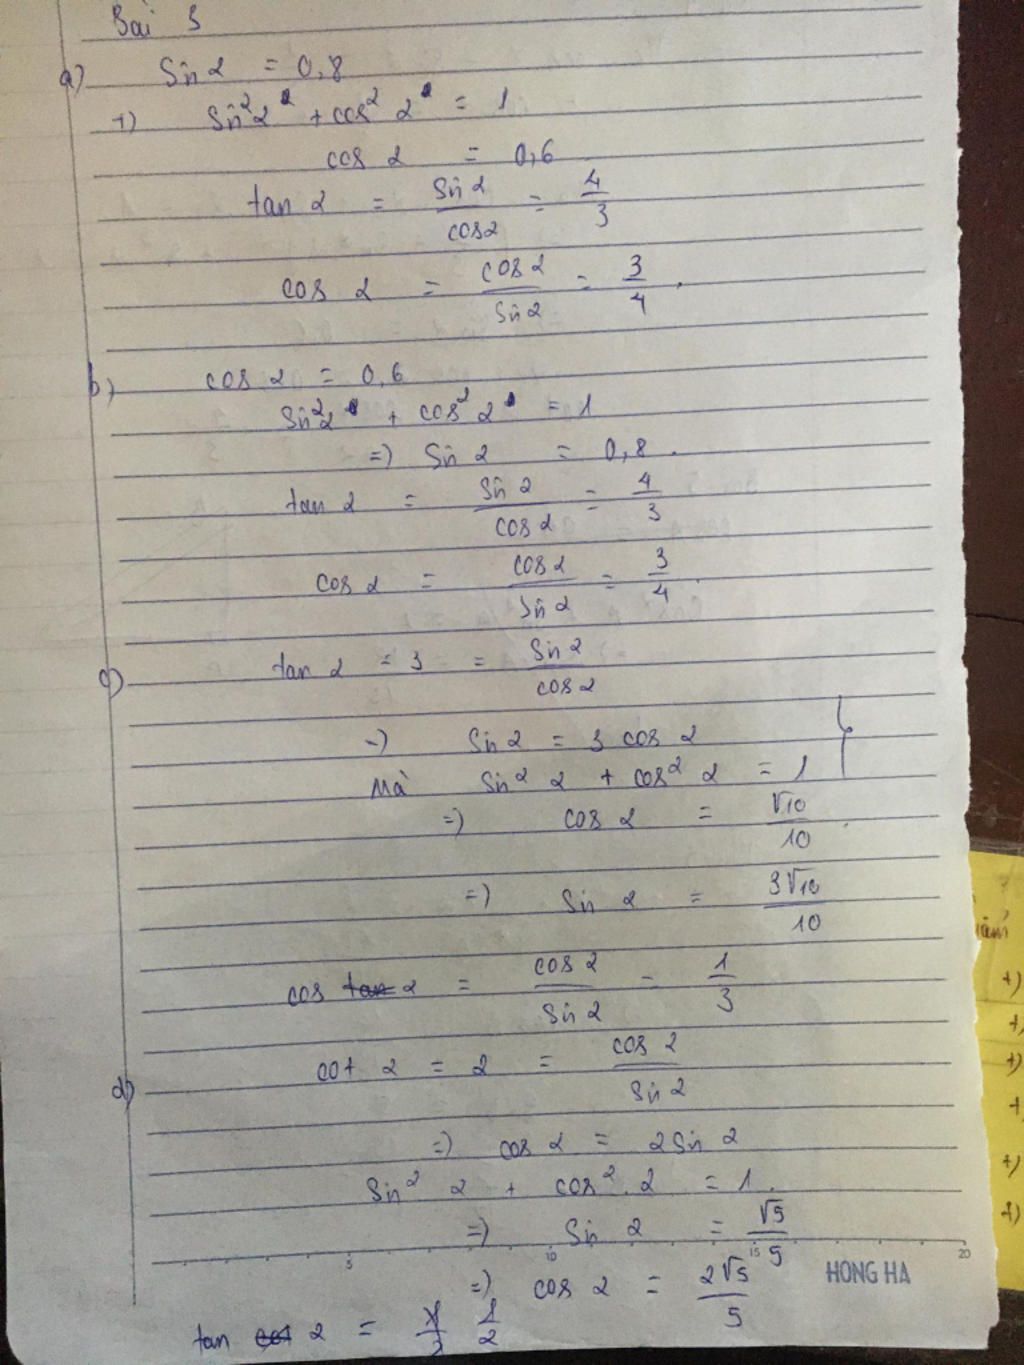 Bài 3
a) Sin α = 0,8
+) Sin² α + cos² α = 1
cos α = 0,6
tan α = Sin α / cos α = 4/3
cos α = cos α / Sin α = 3/4.
b) cos α = 0,6
Sin² α + cos² α = 1
=) Sin α = 0,8.
tan α = Sin α / cos α = 4/3
cos α = cos α / Sin α = 3/4.
c) tan α = 3 = Sin α / cos α
=) Sin α = 3 cos α
Mà Sin² α + cos² α = 1 }
=) cos α = √10 / 10.
=) Sin α = 3√10 / 10
cos α = cos α / Sin α = 1/3
d) cot α = 2 = cos α / Sin α
=) cos α = 2 Sin α
Sin² α + cos² α = 1.
=) Sin α = √5 / 5
5 10 15 20
HONG HA
=) cos α = 2√5 / 5
tan α = 1/2
+)
+,
+)
+
+)
+)